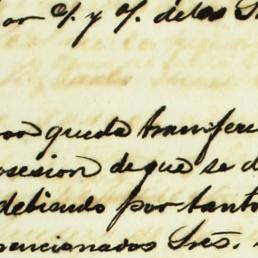 or c/. y c/. de los S
queda transfere
osesion de que se d
debiendo por tanto
encionados Sres.